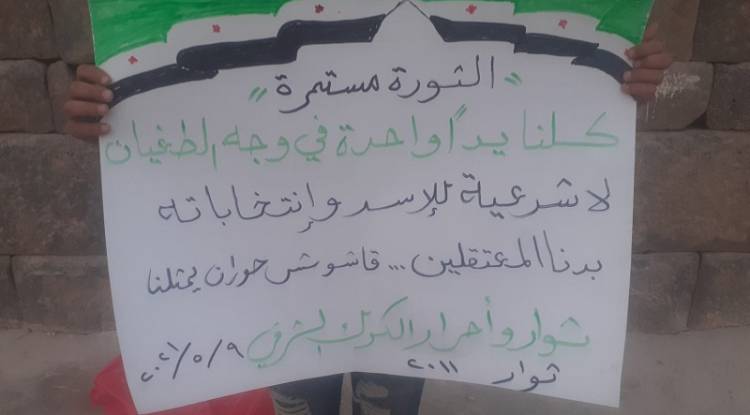 "الثورة مستمرة"
كلنا يداً واحدة في وجه الطغيان
لا شرعية للإسد وإنتخاباته
بدنا المعتقلين... قاشوش حوران يمثلنا
ثوار وأحرار الكرك الشرقي
ثوار ٢٠١١ ٢٠٢١/٥/٩